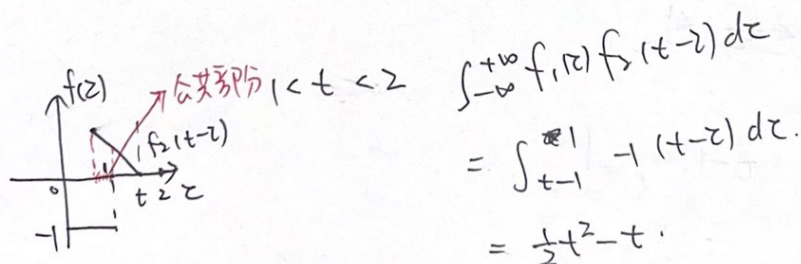 f(τ)
公共部份 1 < t < 2
f₂(t-τ)
0 1 t 2 τ
-1
∫_{-∞}^{+∞} f₁(τ) f₂(t-τ) dτ
= ∫_{t-1}^{1} -1 (t-τ) dτ.
= ½t² - t.